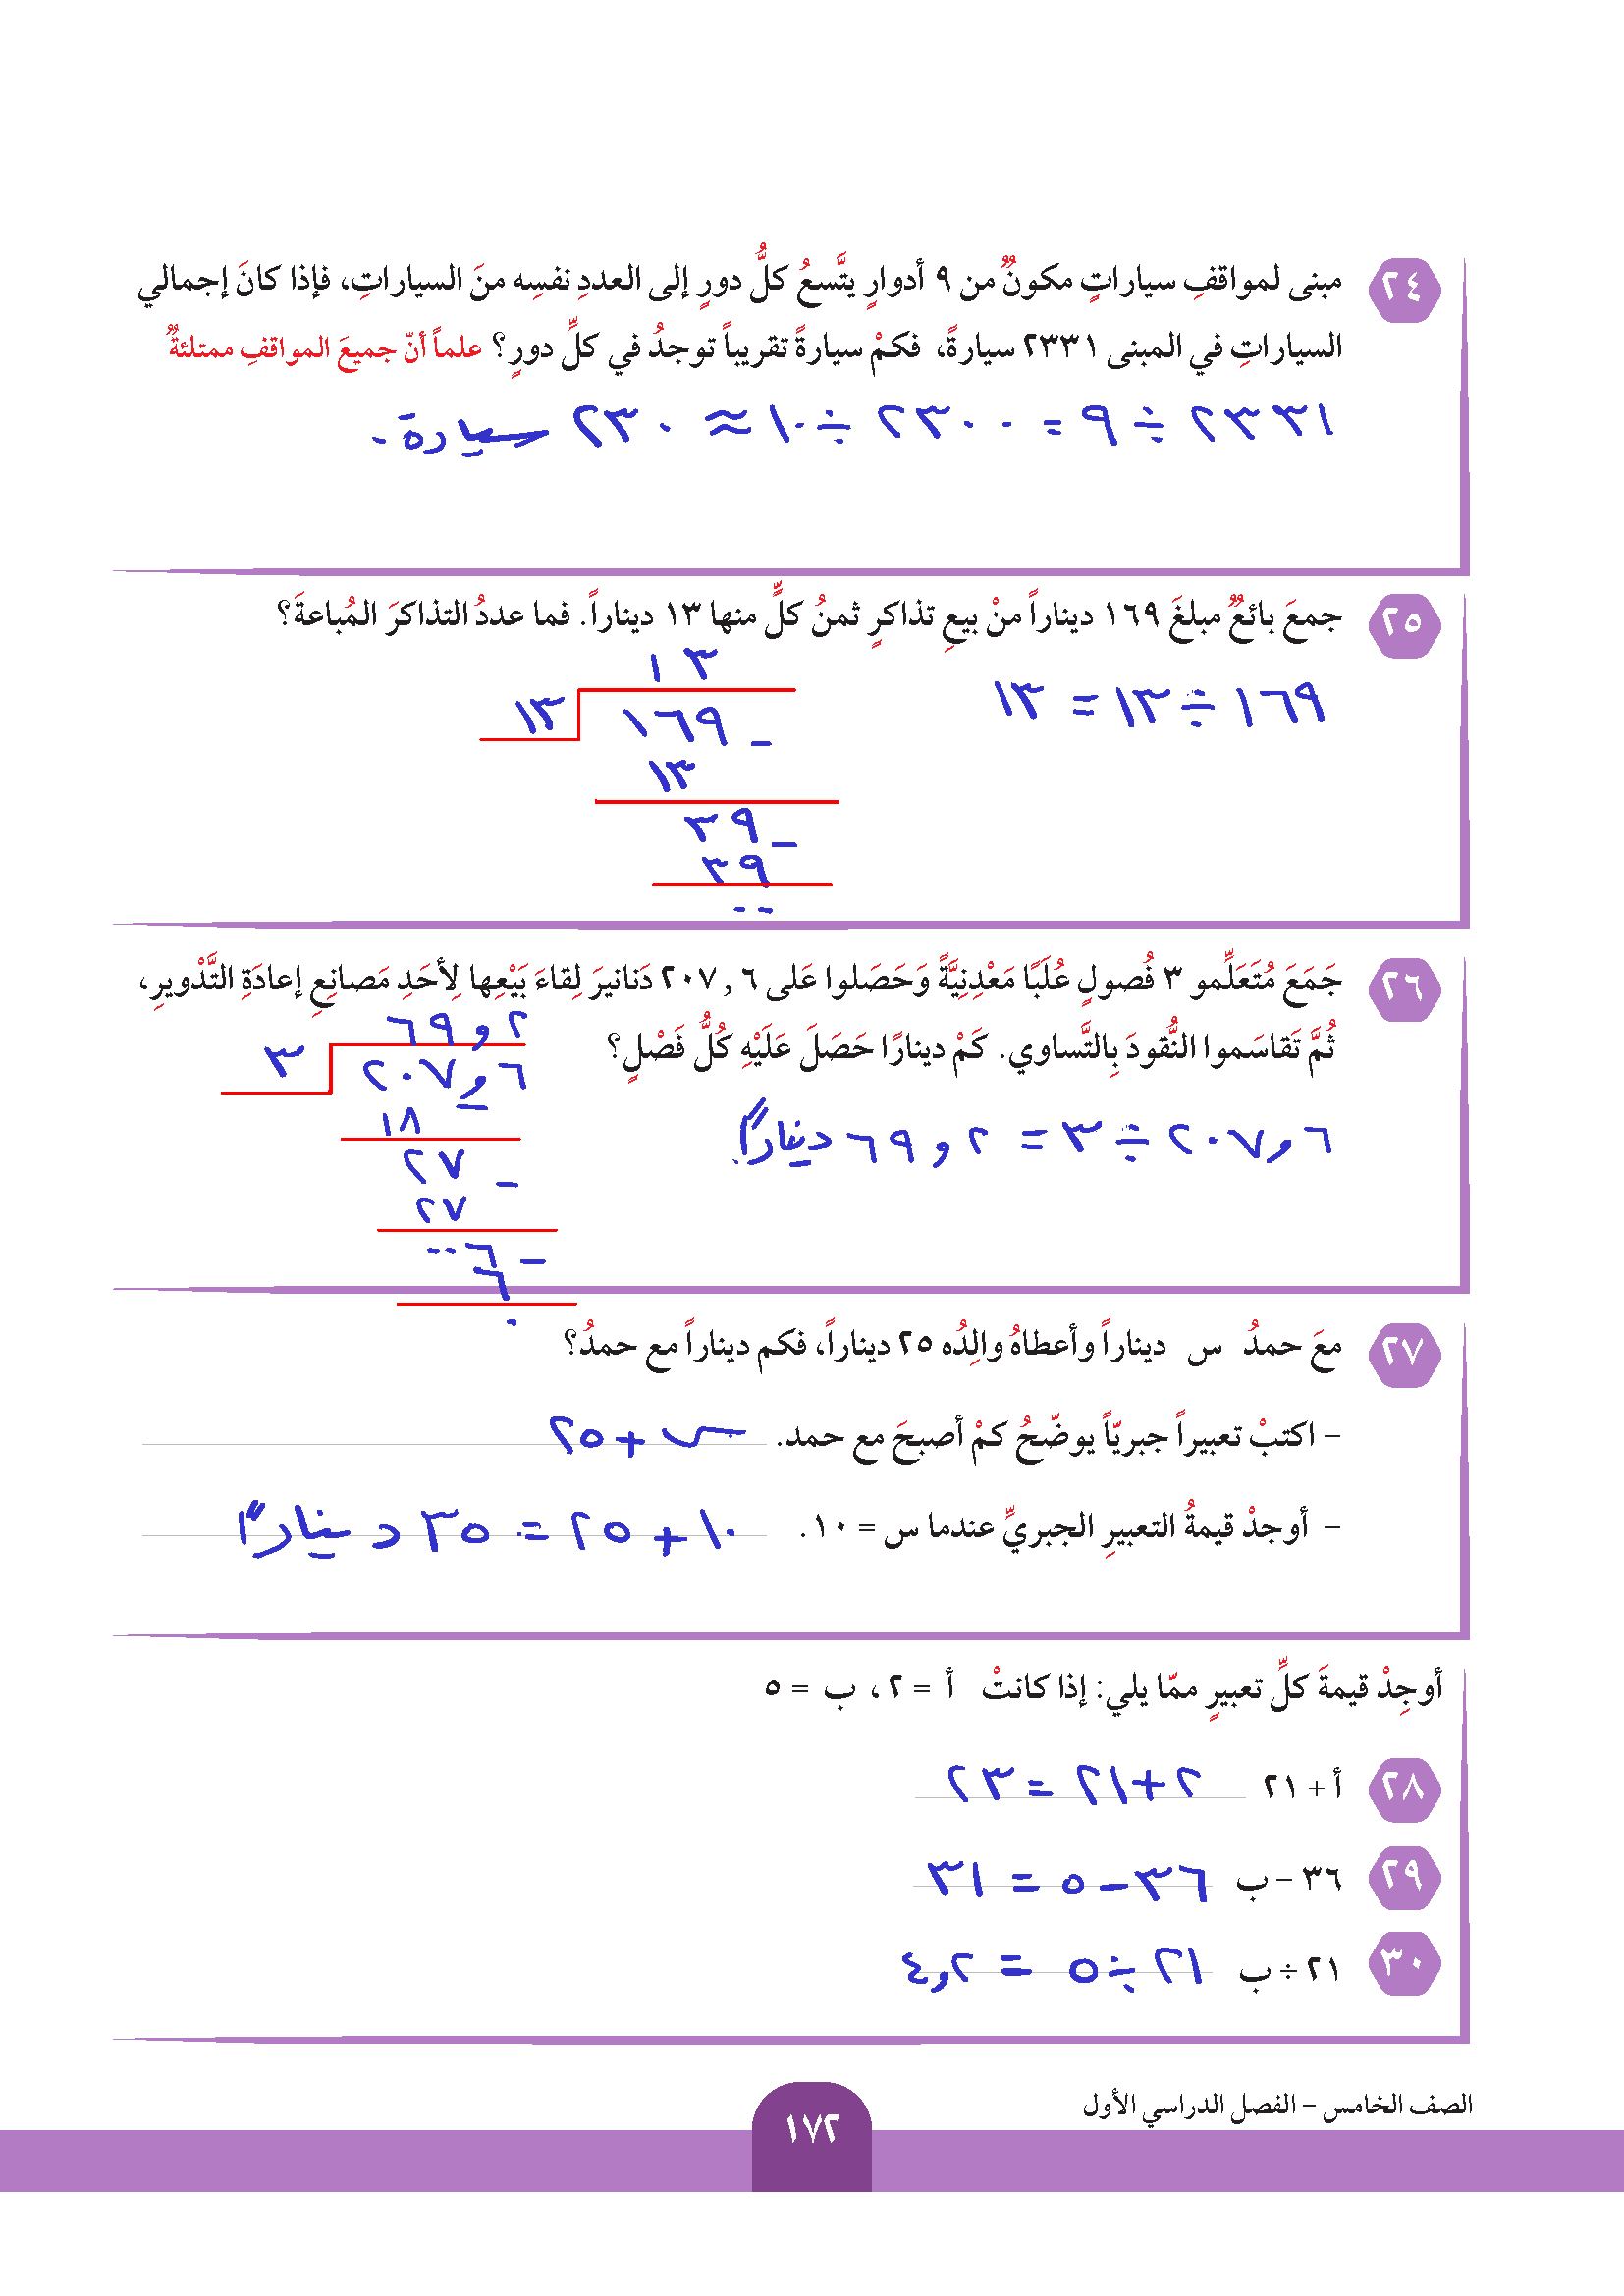 ٢٤ مبنى لمواقفِ سياراتٍ مكونٌ من ٩ أدوارٍ يتَّسعُ كلُّ دورٍ إلى العددِ نفسِه منَ السياراتِ، فإذا كانَ إجمالي
السياراتِ في المبنى ٢٣٣١ سيارةً، فكمْ سيارةً تقريباً توجدُ في كلِّ دورٍ؟ علماً أنّ جميعَ المواقفِ ممتلئةٌ
٢٣٣١ ÷ ٩ = ٢٣٠٠ ÷ ١٠ ≈ ٢٣٠ سيارة.
٢٥ جمعَ بائعٌ مبلغَ ١٦٩ ديناراً منْ بيعِ تذاكرٍ ثمنُ كلٍّ منها ١٣ ديناراً. فما عددُ التذاكرَ المُباعةَ؟
١٦٩ ÷ ١٣ = ١٣
١٣
١٦٩ –
١٣
١٣
٣٩ –
٣٩
٠٠
٢٦ جَمَعَ مُتَعَلِّمو ٣ فُصولٍ عُلَبًا مَعْدِنِيَّةً وَحَصَلوا عَلى ٢٠٧,٦ دَنانيرَ لِقاءَ بَيْعِها لِأَحَدِ مَصانِعِ إعادَةِ التَّدْويرِ،
ثُمَّ تَقاسَموا النُّقودَ بِالتَّساوي. كَمْ دينارًا حَصَلَ عَلَيْهِ كُلُّ فَصْلٍ؟
٢٠٧,٦ ÷ ٣ = ٦٩,٢ ديناراً.
٦٩,٢
٣
٢٠٧,٦
–
١٨
٢٧ –
٢٧
٠٠٦ –
٦
٠
٢٧ معَ حمدُ س ديناراً وأعطاهُ والِدُه ٢٥ ديناراً، فكم ديناراً مع حمدُ؟
– اكتبْ تعبيراً جبريّاً يوضّحُ كمْ أصبحَ مع حمد. س + ٢٥
– أوجدْ قيمةُ التعبيرِ الجبريِّ عندما س = ١٠. ١٠ + ٢٥ = ٣٥ ديناراً
أوجِدْ قيمةَ كلِّ تعبيرٍ ممّا يلي: إذا كانتْ أ = ٢، ب = ٥
٢٨ أ + ٢١ ٢ + ٢١ = ٢٣
٢٩ ٣٦ – ب ٣٦ – ٥ = ٣١
٣٠ ٢١ ÷ ب ٢١ ÷ ٥ = ٤,٢
الصف الخامس – الفصل الدراسي الأول
١٧٢